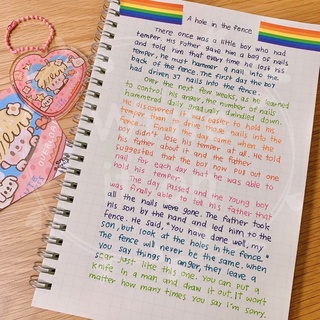 A hole in the fence
There once was a little boy who had
temper. His father gave him a bag of nails
and told him that every time he lost his
temper, he must hammer a nail into the
back of the fence. The first day the boy
had driven 37 nails into the fence.
Over the next few weeks, as he learned
to control his anger, the number of nails
hammered daily gradually dwindled down.
He discovered it was easier to hold his
temper than to drive those nails into the
fence... Finally the day came when the
boy didn't lose his temper at all. He told
his father about it and the father
suggested that the boy now pull one
nail for each day that he was able to
hold his temper.
The day passed and the young boy
was finally able to tell his father that
all the nails were gone. The father took
his son by the hand and led him to the
fence. He said, "You have done well, my
son, but look at the holes in the fence."
The fence will never be the same. When
you say things in anger, they leave a
scar just like this one. You can put a
knife in a man and draw it out. It won't
matter how many times you say I'm sorry.